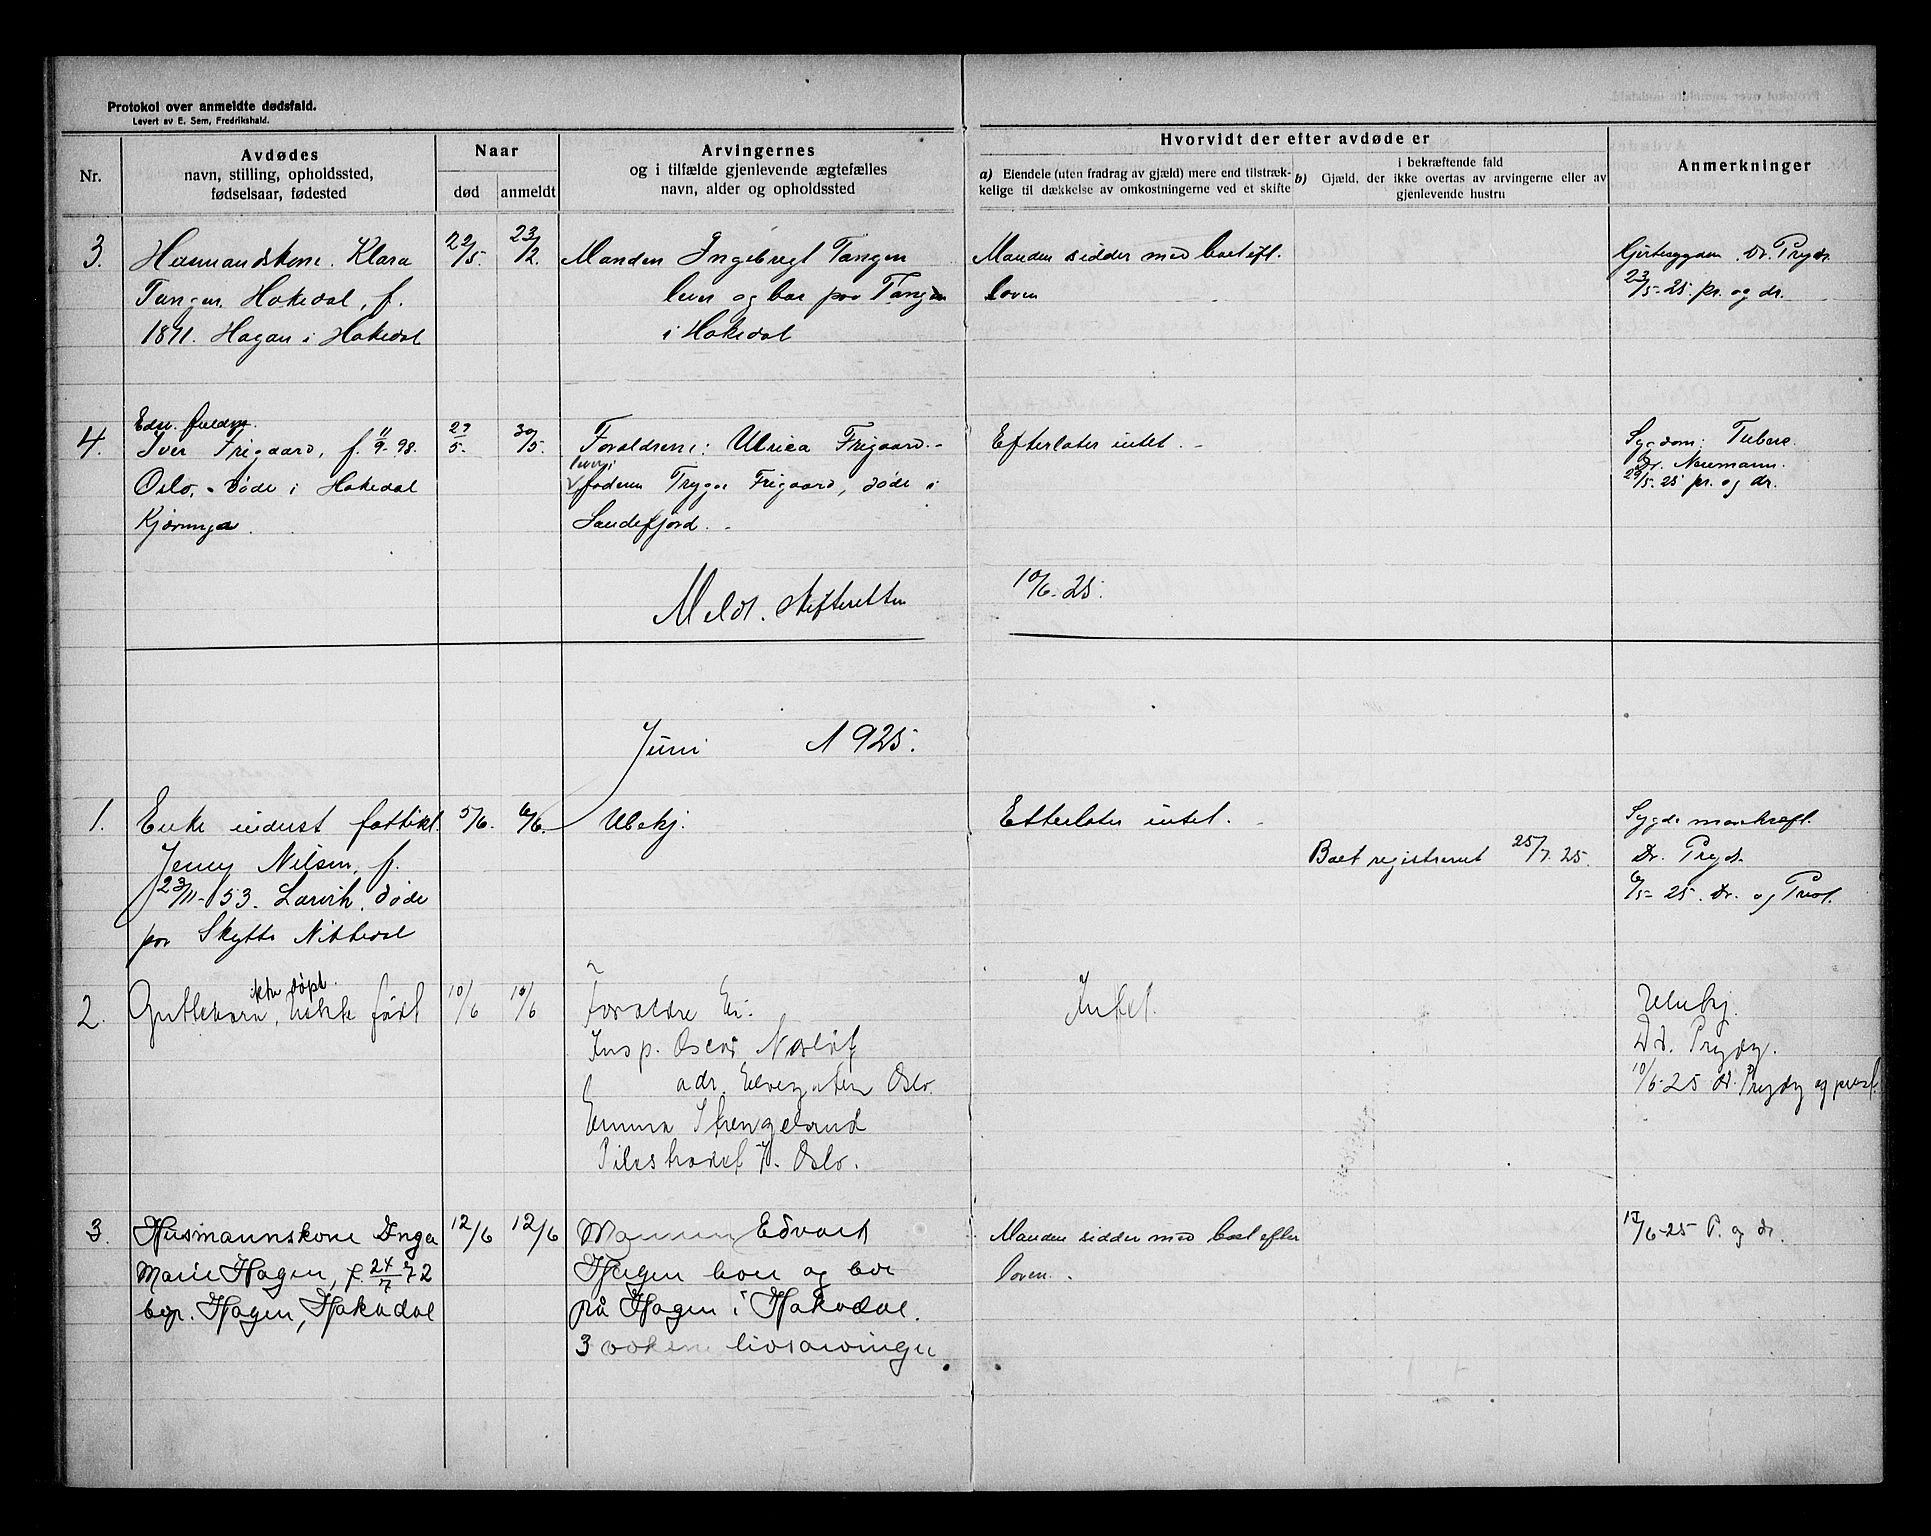 Protokol over anmeldte dødsfald.
Levert av E. Sem, Fredrikshald.
Nr.
Avdødes
navn, stilling, opholdssted,
fødselsaar, fødested
Naar
død
anmeldt
Arvingernes
og i tilfælde gjenlevende ægtefælles
navn, alder og opholdssted
Hvorvidt der efter avdøde er
a) Eiendele (uten fradrag av gjæld) mere end tilstræk-
kelige til dækkelse av omkostningerne ved et skifte
i bekræftende fald
b) Gjæld, der ikke overtas av arvingerne eller av
gjenlevende hustru
Anmerkninger
3.
Klara
Tangen, Hakedal, f.
1871. Hagan i Hakedal
22/5.
Manden Ingebregt Tangen
lever og bor paa Tangen
i Hakedal
Manden sidder med boet eft.
loven
Dr. Prydz
23/5-25. pr. og dr.
4.
Iver Frigaard, f. 11/9-98.
Oslo, - døde i Hakedal
29/5.
30/5.
Forældrene: Ulrica Frigaard. -
faderen Trygve Frigaard, døde i
Sandefjord. -
Efterlater intet. -
Sygdom: Tuberc.
Dr. Neumann.
29/5-25 pr. og dr.
Meldt. Skifteretten
10/6-25.
Juni 1925.
1.
Enke underst fattikl.
Jenny Nilsen, f.
23/11-53. Larvik, døde
paa Skytta Nittedal
5/6.
6/6.
Ubekj.
Efterlater intet. -
Boet registreret 25/7. 25.
Dr. Prydz
6/5-25. Dr. og Prest.
2.
ikke døpt.
Guttebarn, født
10/6
10/6
Forældre
Insp. Oscar
adr. Oslo.
Emma
Oslo.
Intet.
Ubekj.
Dr. Prydz.
10/6-25 dr. Prydz og prest.
3.
Husmannskone Inga
Marie Hagen, f. 24/7 72
Hagen, Hakadal
12/6
12/6
Mannen Edvart
Hagen lever og bor
på Hagen i Hakadal.
3 voksne livsarvinger
Manden sidder med boet efter
loven. -
12/6-25 P. og dr.